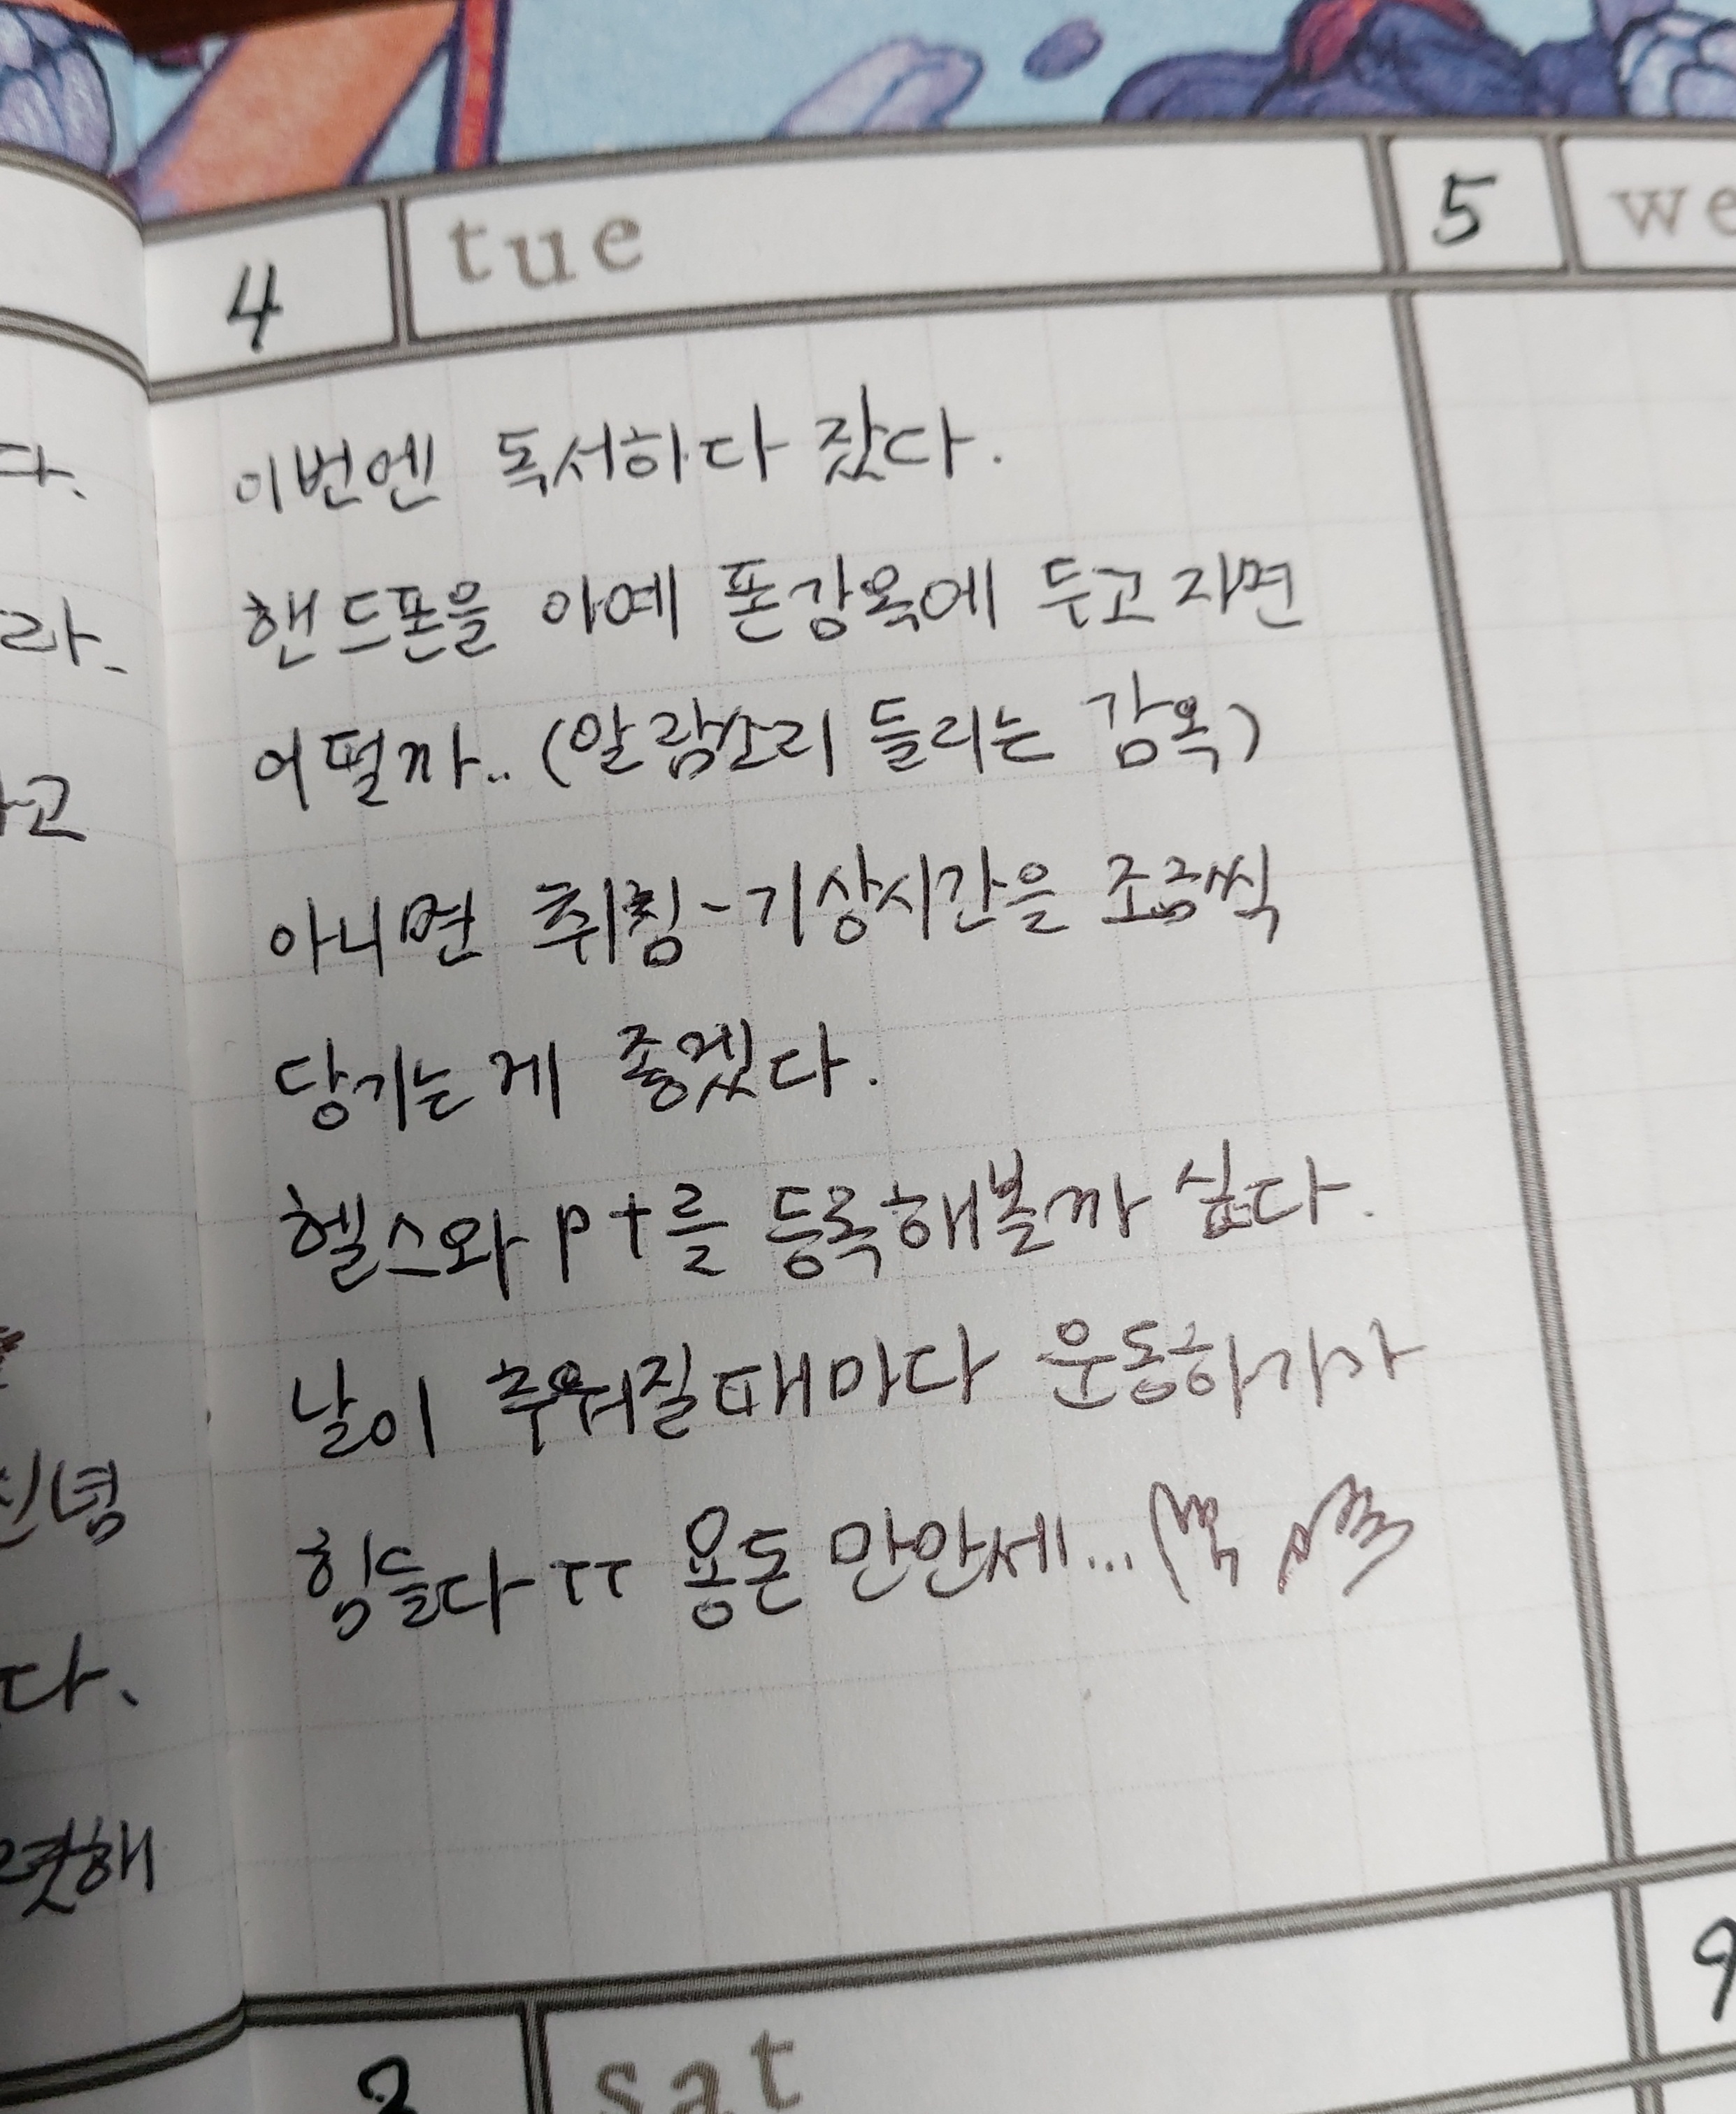 다.
라.
고
신념
다.
렷해
4 tue 5 we
이번엔 독서하다 잤다.
핸드폰을 아예 폰감옥에 두고자면
어떨까.. (알람소리 들리는 감옥)
아니면 취침-기상시간을 조금씩
당기는게 좋겠다.
헬스와 pt를 등록해볼까 싶다.
날이 추워질때마다 운동하기가
힘들다ㅜㅜ 용돈 만만세...
sat 9